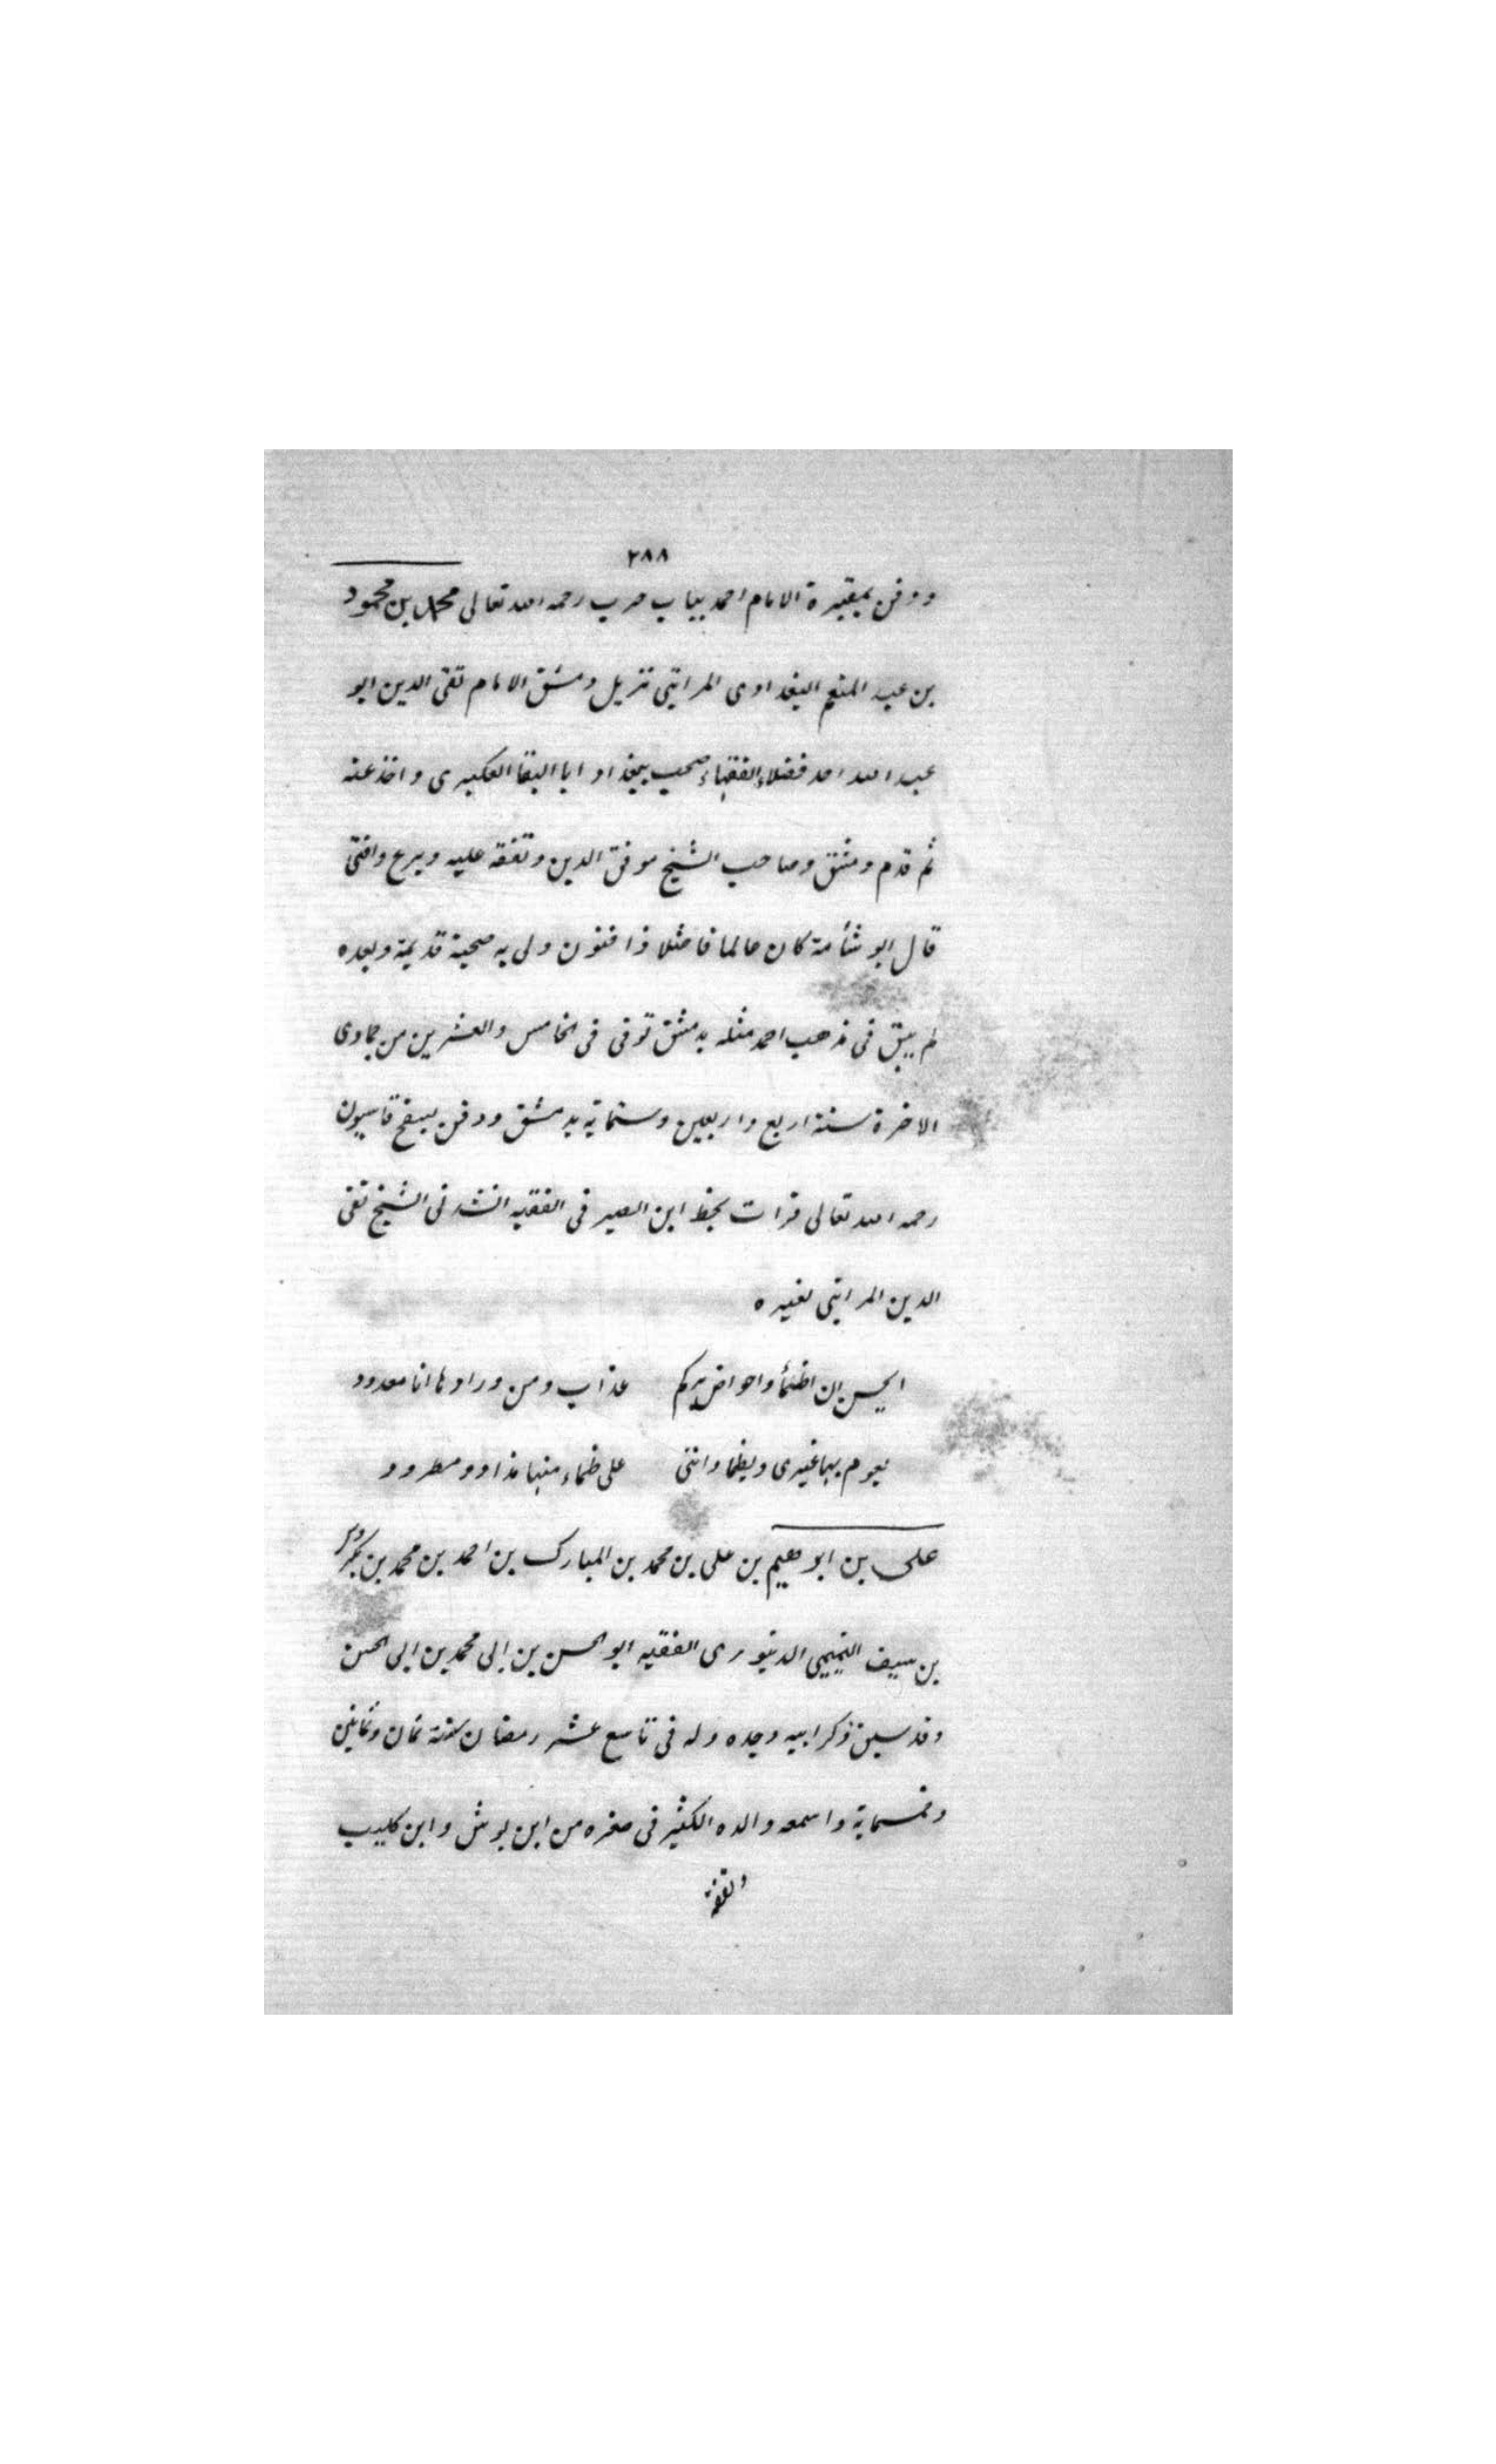 ٢٨٨
ودفن بمقبرة الامام احمد بباب حرب رحمه الله تعالى محمد بن محمود
بن عبد المنعم البغدادى المراتبى نزيل دمشق الامام تقى الدين ابو
عبد الله احد فضلاء الفقهاء صحب ببغداد ابا البقا العكبرى واخذ عنه
ثم قدم دمشق وصاحب الشيخ موفق الدين وتفقه عليه وبرع وافتى
قال ابو شأمة كان عالما فاضلا ذا فنون ولى به صحبة قديمة وبعده
لم يبق فى مذهب احمد مثله بدمشق توفى فى الخامس والعشرين من جمادى
الاخرة سنة اربع واربعين وستماية بدمشق ودفن بسفح قاسيون
رحمه الله تعالى قرات بخط ابن الصيرفى الفقيه انشدنى الشيخ تقى
الدين المراتبى لغيره
ايحسن ان اظمأ واحواض بركم عذاب ومن ورادها انا معدود
يعوم بها غيرى ويظما واننى على ظماء منها مذاد ومطرود
على بن ابرهيم بن على بن محمد بن المبارك بن احمد بن محمد بن بكروس
بن سيف التميمى الدينورى الفقيه ابو الحسن بن ابى محمد بن ابى الحسن
وقد سبق ذكر ابيه وجده ولد فى تاسع عشر رمضان سنة ثمان وثمانين
وخمسماية واسمعه والده الكثير فى صغره من ابن بوش وابن كليب
وتفقه